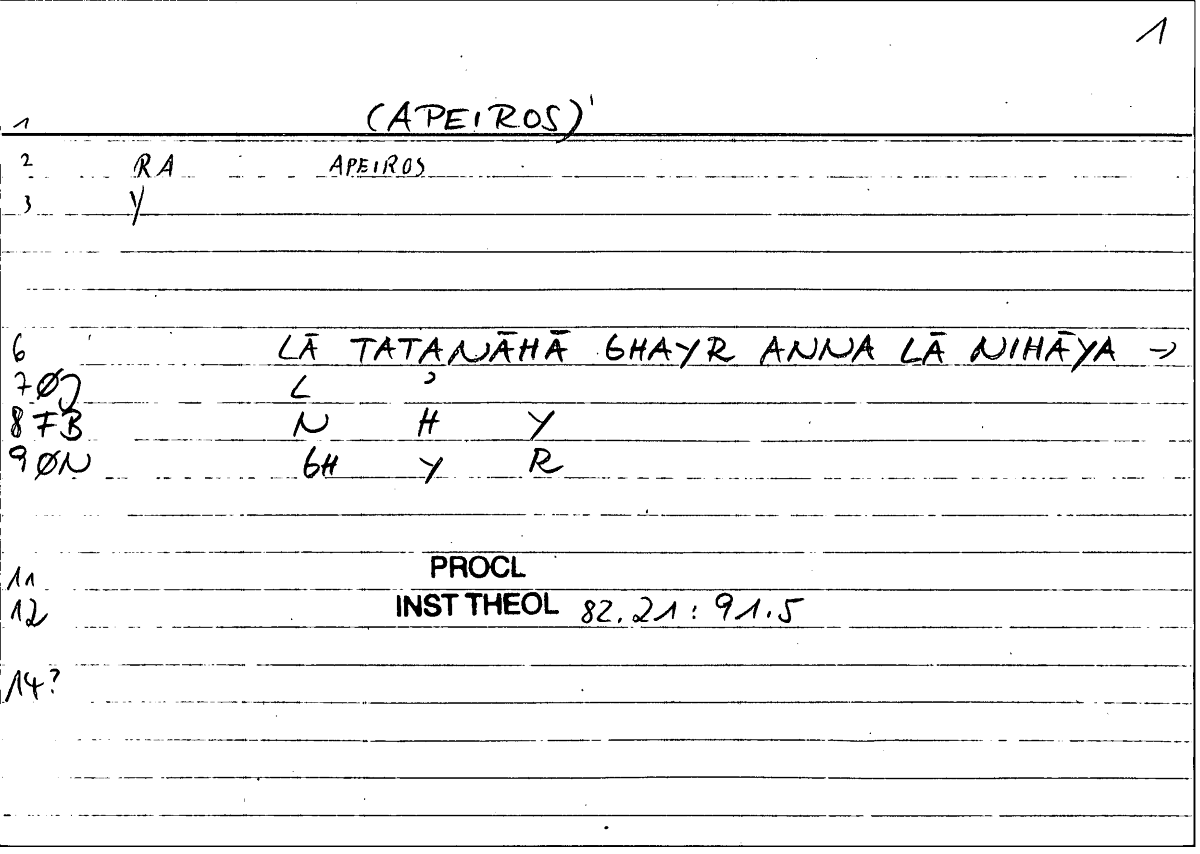 1
1 (APEIROS)'
2 RA APEIROS
3 Y
6 LĀ TATANĀHĀ GHAYR ANNA LĀ NIHĀYA →
7 ØJ L ʾ
8 FB N H Y
9 ØN GH Y R
11 PROCL
12 INST THEOL 82.21 : 91.5
14?